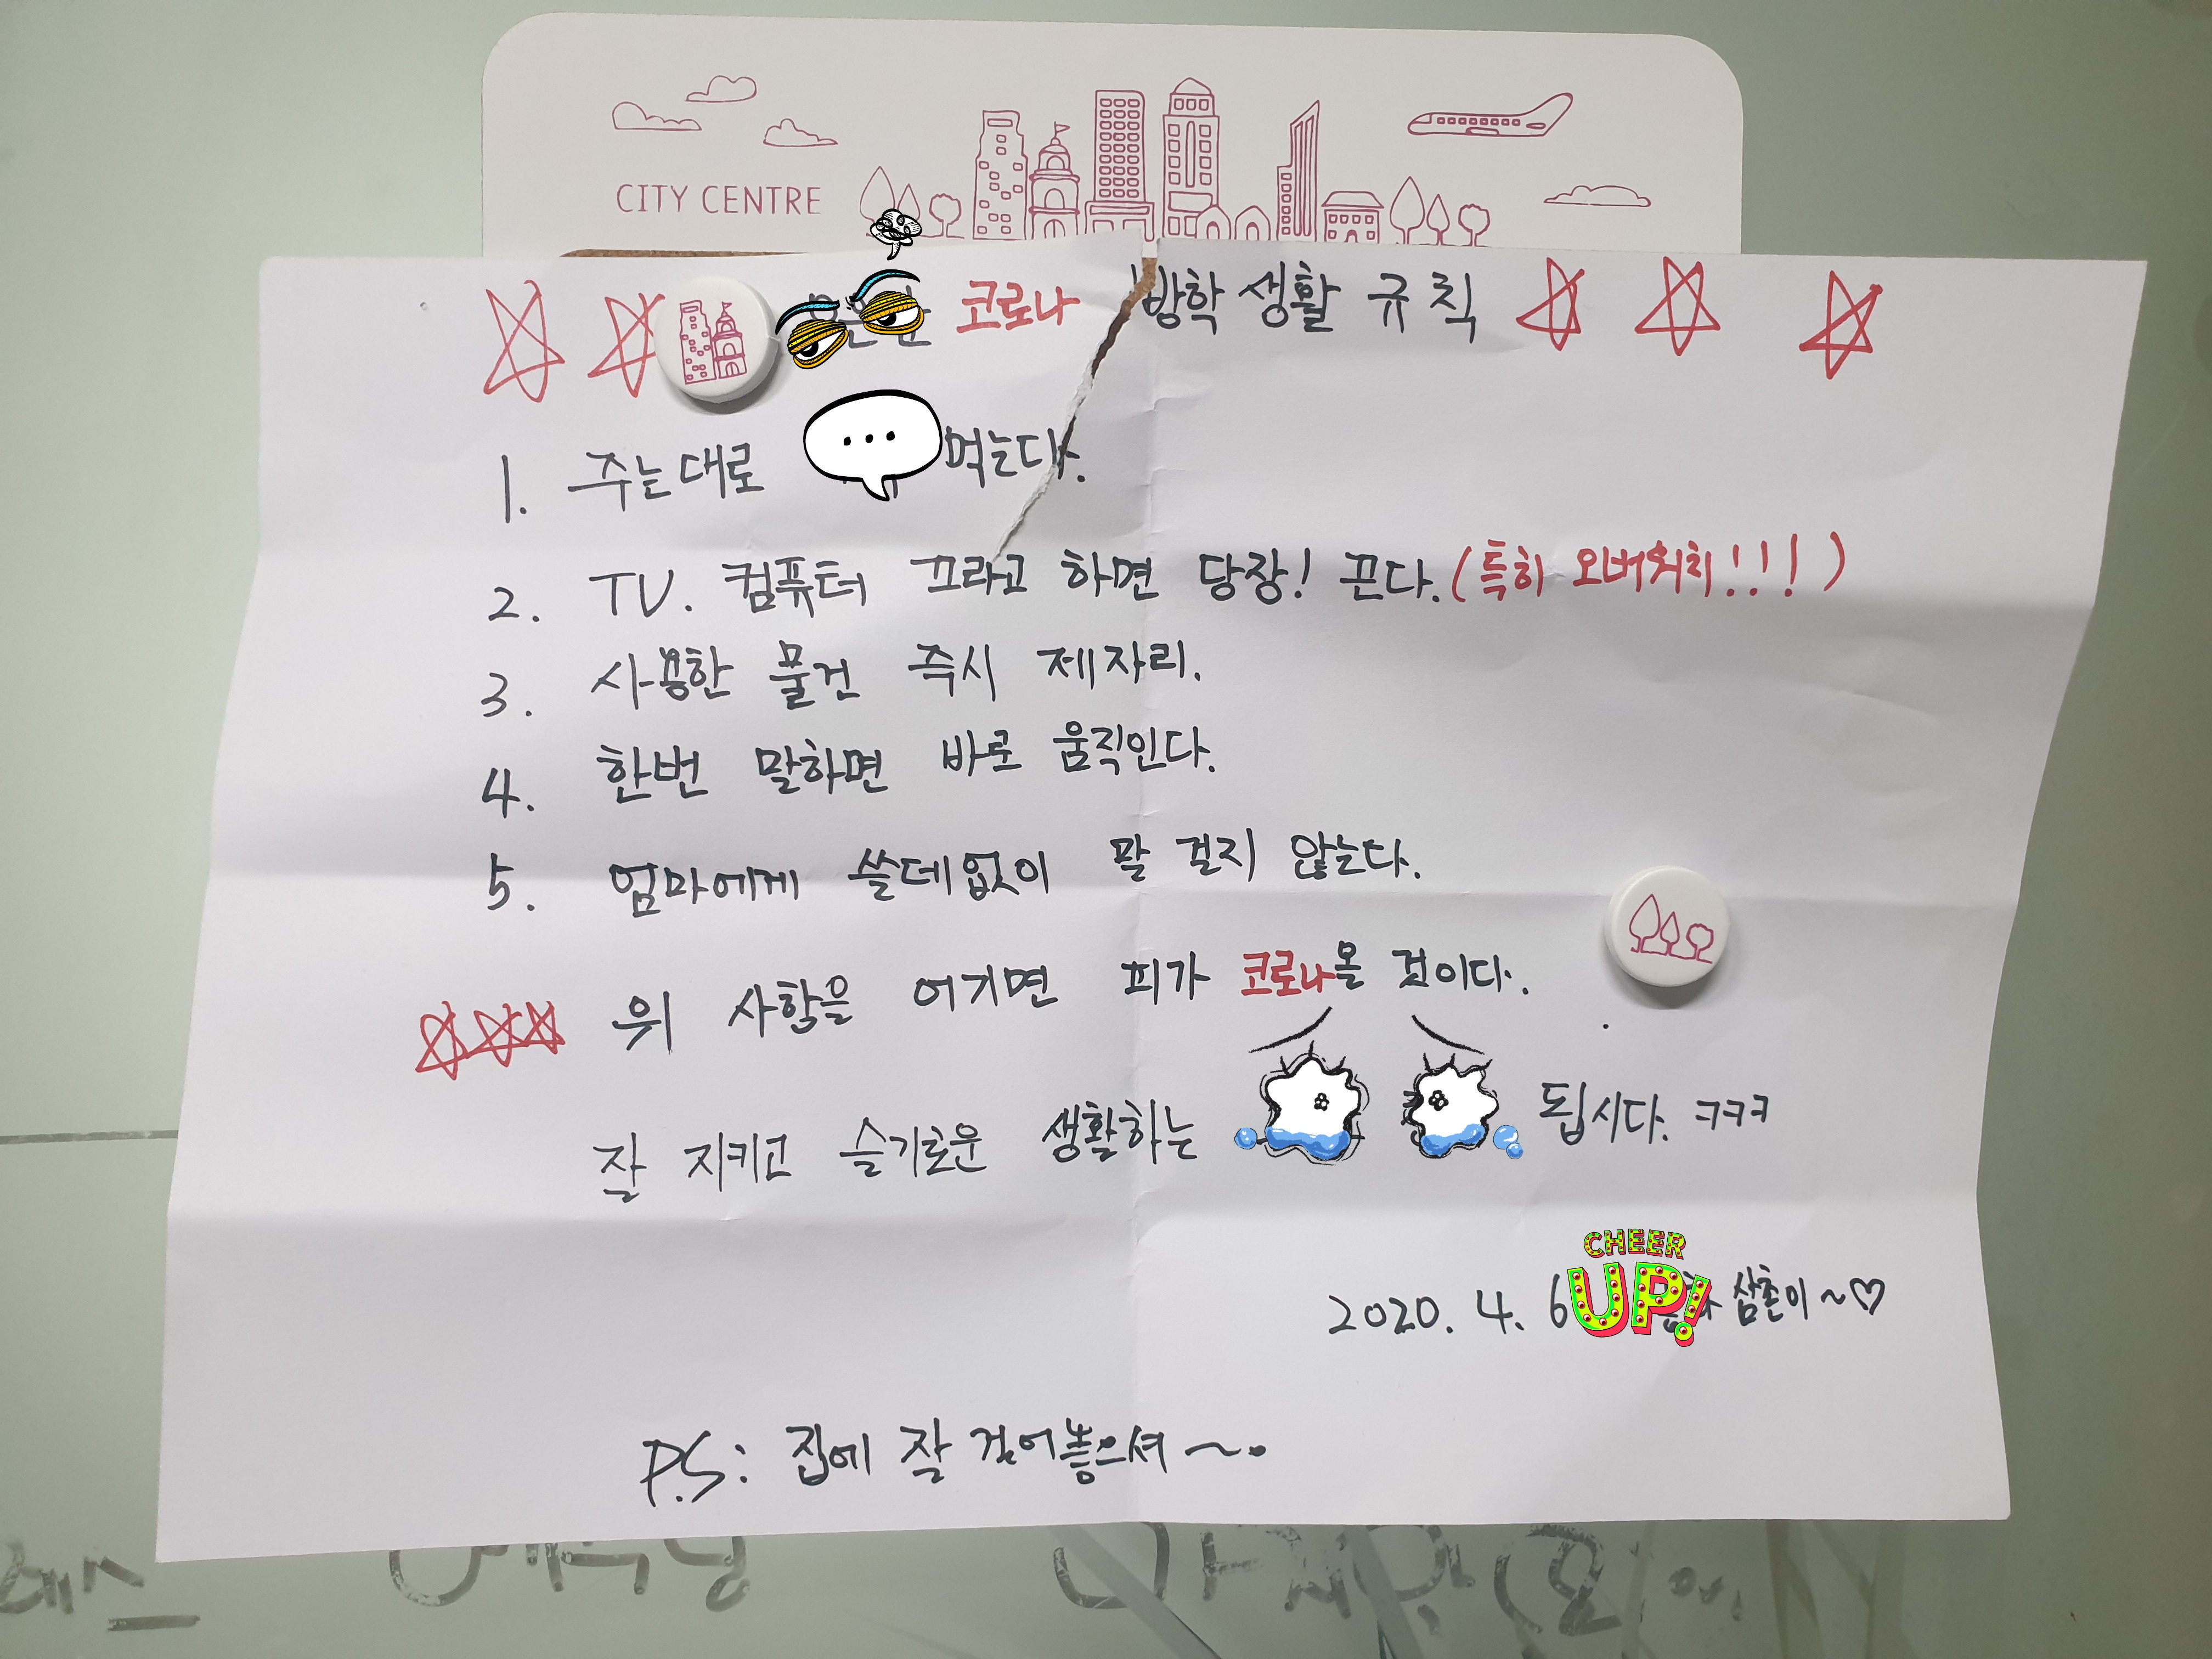 CITY CENTRE
코로나 방학 생활 규칙
1. 주는대로 먹는다.
2. TV. 컴퓨터 끄라고 하면 당장! 끈다. (특히 오버워치!!!)
3. 사용한 물건 즉시 제자리.
4. 한번 말하면 바로 움직인다.
5. 엄마에게 쓸데없이 말 걸지 않는다.
위 사항을 어기면 피가 코로나올 것이다.
잘 지키고 슬기로운 생활하는 됩시다. ㅋㅋㅋ
CHEER
UP!
2020. 4. 6 삼촌이~♡
P.S: 집에 잘 걸어놓으셔~.